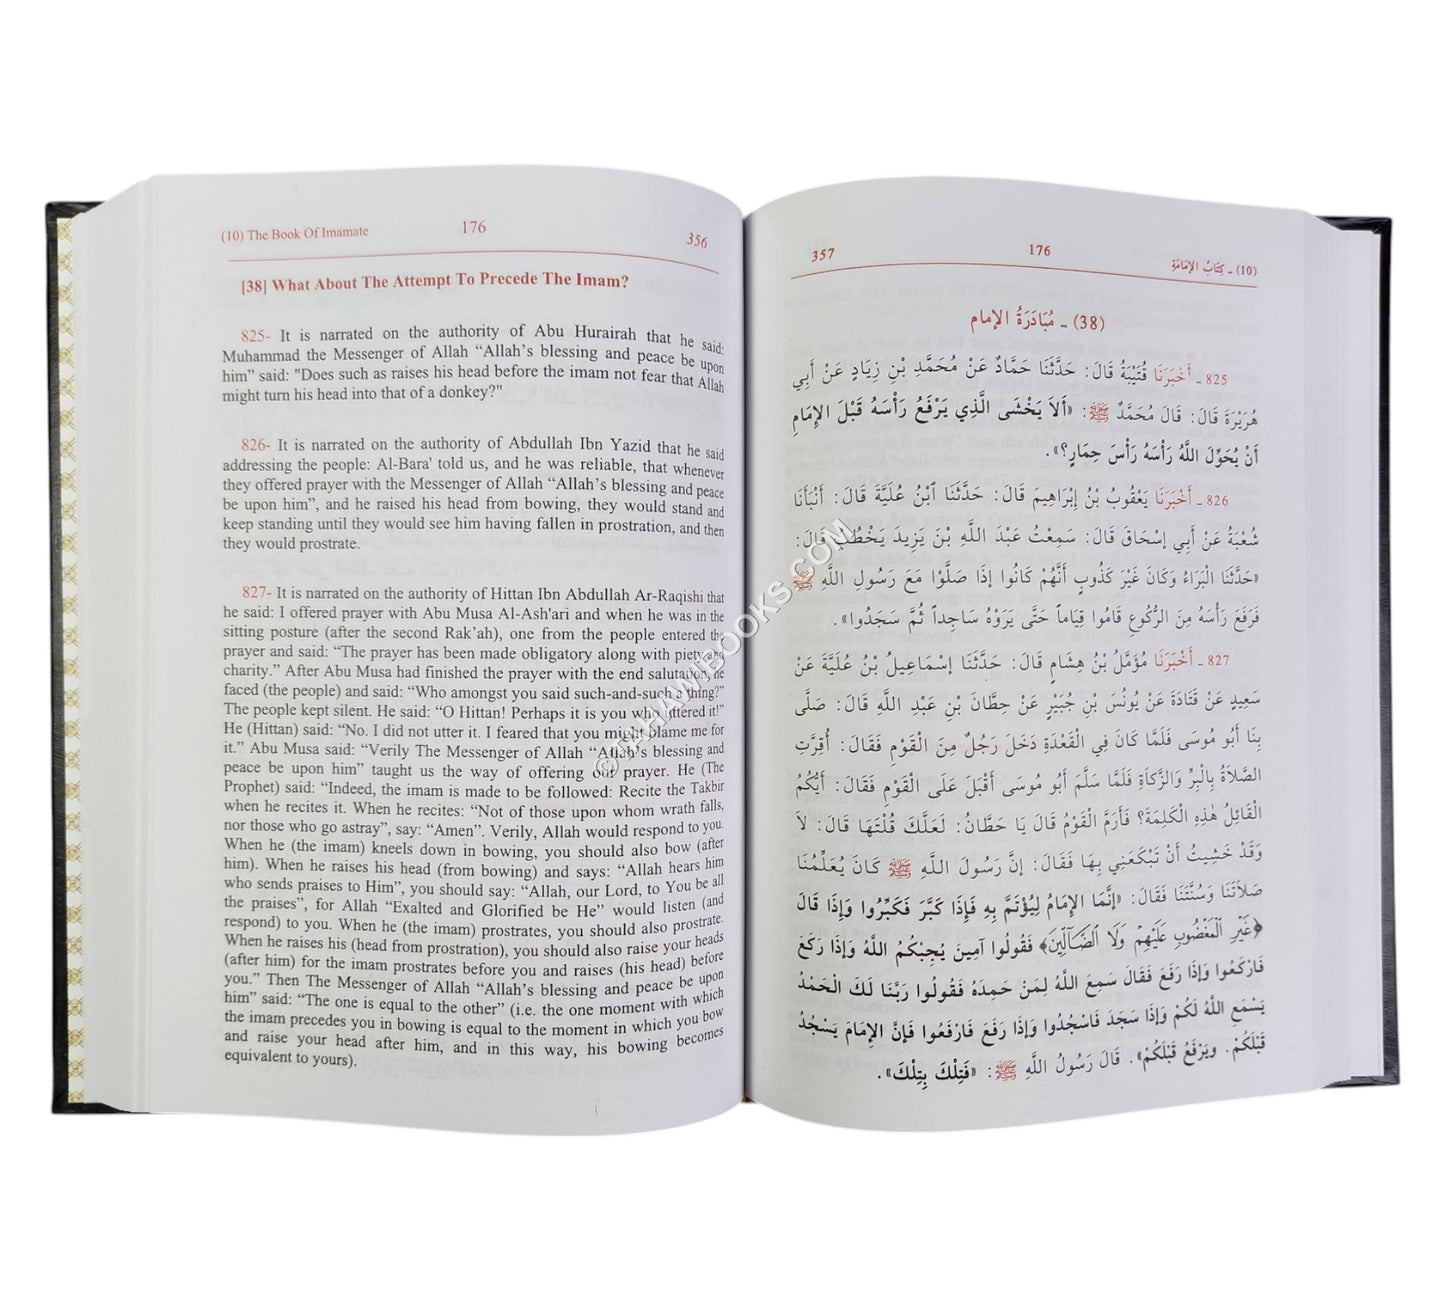 (10) The Book Of Imamate 176 356
[38] What About The Attempt To Precede The Imam?
825- It is narrated on the authority of Abu Hurairah that he said:
Muhammad the Messenger of Allah “Allah’s blessing and peace be upon
him” said: "Does such as raises his head before the imam not fear that Allah
might turn his head into that of a donkey?"
826- It is narrated on the authority of Abdullah Ibn Yazid that he said
addressing the people: Al-Bara' told us, and he was reliable, that whenever
they offered prayer with the Messenger of Allah “Allah’s blessing and peace
be upon him”, and he raised his head from bowing, they would stand and
keep standing until they would see him having fallen in prostration, and then
they would prostrate.
827- It is narrated on the authority of Hittan Ibn Abdullah Ar-Raqishi that
he said: I offered prayer with Abu Musa Al-Ash'ari and when he was in the
sitting posture (after the second Rak’ah), one from the people entered the
prayer and said: “The prayer has been made obligatory along with piety and
charity.” After Abu Musa had finished the prayer with the end salutation, he
faced (the people) and said: “Who amongst you said such-and-such a thing?”
The people kept silent. He said: “O Hittan! Perhaps it is you who uttered it!”
He (Hittan) said: “No. I did not utter it. I feared that you might blame me for
it.” Abu Musa said: “Verily The Messenger of Allah “Allah’s blessing and
peace be upon him” taught us the way of offering our prayer. He (The
Prophet) said: “Indeed, the imam is made to be followed: Recite the Takbir
when he recites it. When he recites: “Not of those upon whom wrath falls,
nor those who go astray”, say: “Amen”. Verily, Allah would respond to you.
When he (the imam) kneels down in bowing, you should also bow (after
him). When he raises his head (from bowing) and says: “Allah hears him
who sends praises to Him”, you should say: “Allah, our Lord, to You be all
the praises”, for Allah “Exalted and Glorified be He” would listen (and
respond) to you. When he (the imam) prostrates, you should also prostrate.
When he raises his (head from prostration), you should also raise your heads
(after him) for the imam prostrates before you and raises (his head) before
you.” Then The Messenger of Allah “Allah’s blessing and peace be upon
him” said: “The one is equal to the other” (i.e. the one moment with which
the imam precedes you in bowing is equal to the moment in which you bow
and raise your head after him, and in this way, his bowing becomes
equivalent to yours).
(10) ـ كِتَابُ الإِمَامَةِ 176 357
(38) ـ مُبَادَرَةُ الإِمام
825 ـ أَخْبَرَنَا قُتَيْبَةُ قَالَ: حَدَّثَنَا حَمَّادٌ عَنْ مُحَمَّدِ بْنِ زِيَادٍ عَنْ أَبِي
هُرَيْرَةَ قَالَ: قَالَ مُحَمَّدٌ ﷺ: «أَلاَ يَخْشَى الَّذِي يَرْفَعُ رَأْسَهُ قَبْلَ الإِمَامِ
أَنْ يُحَوِّلَ اللَّهُ رَأْسَهُ رَأْسَ حِمَارٍ؟».
826 ـ أَخْبَرَنَا يَعْقُوبُ بْنُ إِبْرَاهِيمَ قَالَ: حَدَّثَنَا ابْنُ عُلَيَّةَ قَالَ: أَنْبَأَنَا
شُعْبَةُ عَنْ أَبِي إِسْحَاقَ قَالَ: سَمِعْتُ عَبْدَ اللَّهِ بْنَ يَزِيدَ يَخْطُبُ قَالَ:
«حَدَّثَنَا الْبَرَاءُ وَكَانَ غَيْرَ كَذُوبٍ أَنَّهُمْ كَانُوا إِذَا صَلَّوْا مَعَ رَسُولِ اللَّهِ ﷺ
فَرَفَعَ رَأْسَهُ مِنَ الرُّكُوعِ قَامُوا قِيَاماً حَتَّى يَرَوْهُ سَاجِداً ثُمَّ سَجَدُوا».
827 ـ أَخْبَرَنَا مُؤَمَّلُ بْنُ هِشَامٍ قَالَ: حَدَّثَنَا إِسْمَاعِيلُ بْنُ عُلَيَّةَ عَنْ
سَعِيدٍ عَنْ قَتَادَةَ عَنْ يُونُسَ بْنِ جُبَيْرٍ عَنْ حِطَّانَ بْنِ عَبْدِ اللَّهِ قَالَ: صَلَّى
بِنَا أَبُو مُوسَى فَلَمَّا كَانَ فِي الْقَعْدَةِ دَخَلَ رَجُلٌ مِنَ الْقَوْمِ فَقَالَ: أُقِرَّتِ
الصَّلاَةُ بِالْبِرِّ وَالزَّكَاةِ فَلَمَّا سَلَّمَ أَبُو مُوسَى أَقْبَلَ عَلَى الْقَوْمِ فَقَالَ: أَيُّكُمُ
الْقَائِلُ هٰذِهِ الْكَلِمَةَ؟ فَأَرَمَّ الْقَوْمُ قَالَ يَا حَطَّانُ: لَعَلَّكَ قُلْتَهَا قَالَ: لاَ
وَقَدْ خَشِيتُ أَنْ تَبْكَعَنِي بِهَا فَقَالَ: إِنَّ رَسُولَ اللَّهِ ﷺ كَانَ يُعَلِّمُنَا
صَلاَتَنَا وَسُنَّتَنَا فَقَالَ: «إِنَّمَا الإِمَامُ لِيُؤْتَمَّ بِهِ فَإِذَا كَبَّرَ فَكَبِّرُوا وَإِذَا قَالَ
﴿غَيْرِ الْمَغْضُوبِ عَلَيْهِمْ وَلَا الضَّآلِّينَ﴾ فَقُولُوا آمِينَ يُجِبْكُمُ اللَّهُ وَإِذَا رَكَعَ
فَارْكَعُوا وَإِذَا رَفَعَ فَقَالَ سَمِعَ اللَّهُ لِمَنْ حَمِدَهُ فَقُولُوا رَبَّنَا لَكَ الْحَمْدُ
يَسْمَعِ اللَّهُ لَكُمْ وَإِذَا سَجَدَ فَاسْجُدُوا وَإِذَا رَفَعَ فَارْفَعُوا فَإِنَّ الإِمَامَ يَسْجُدُ
قَبْلَكُمْ. ويَرْفَعُ قَبْلَكُمْ». قَالَ رَسُولُ اللَّهِ ﷺ: «فَتِلْكَ بِتِلْكَ».
© TAHAMIBOOKS.COM